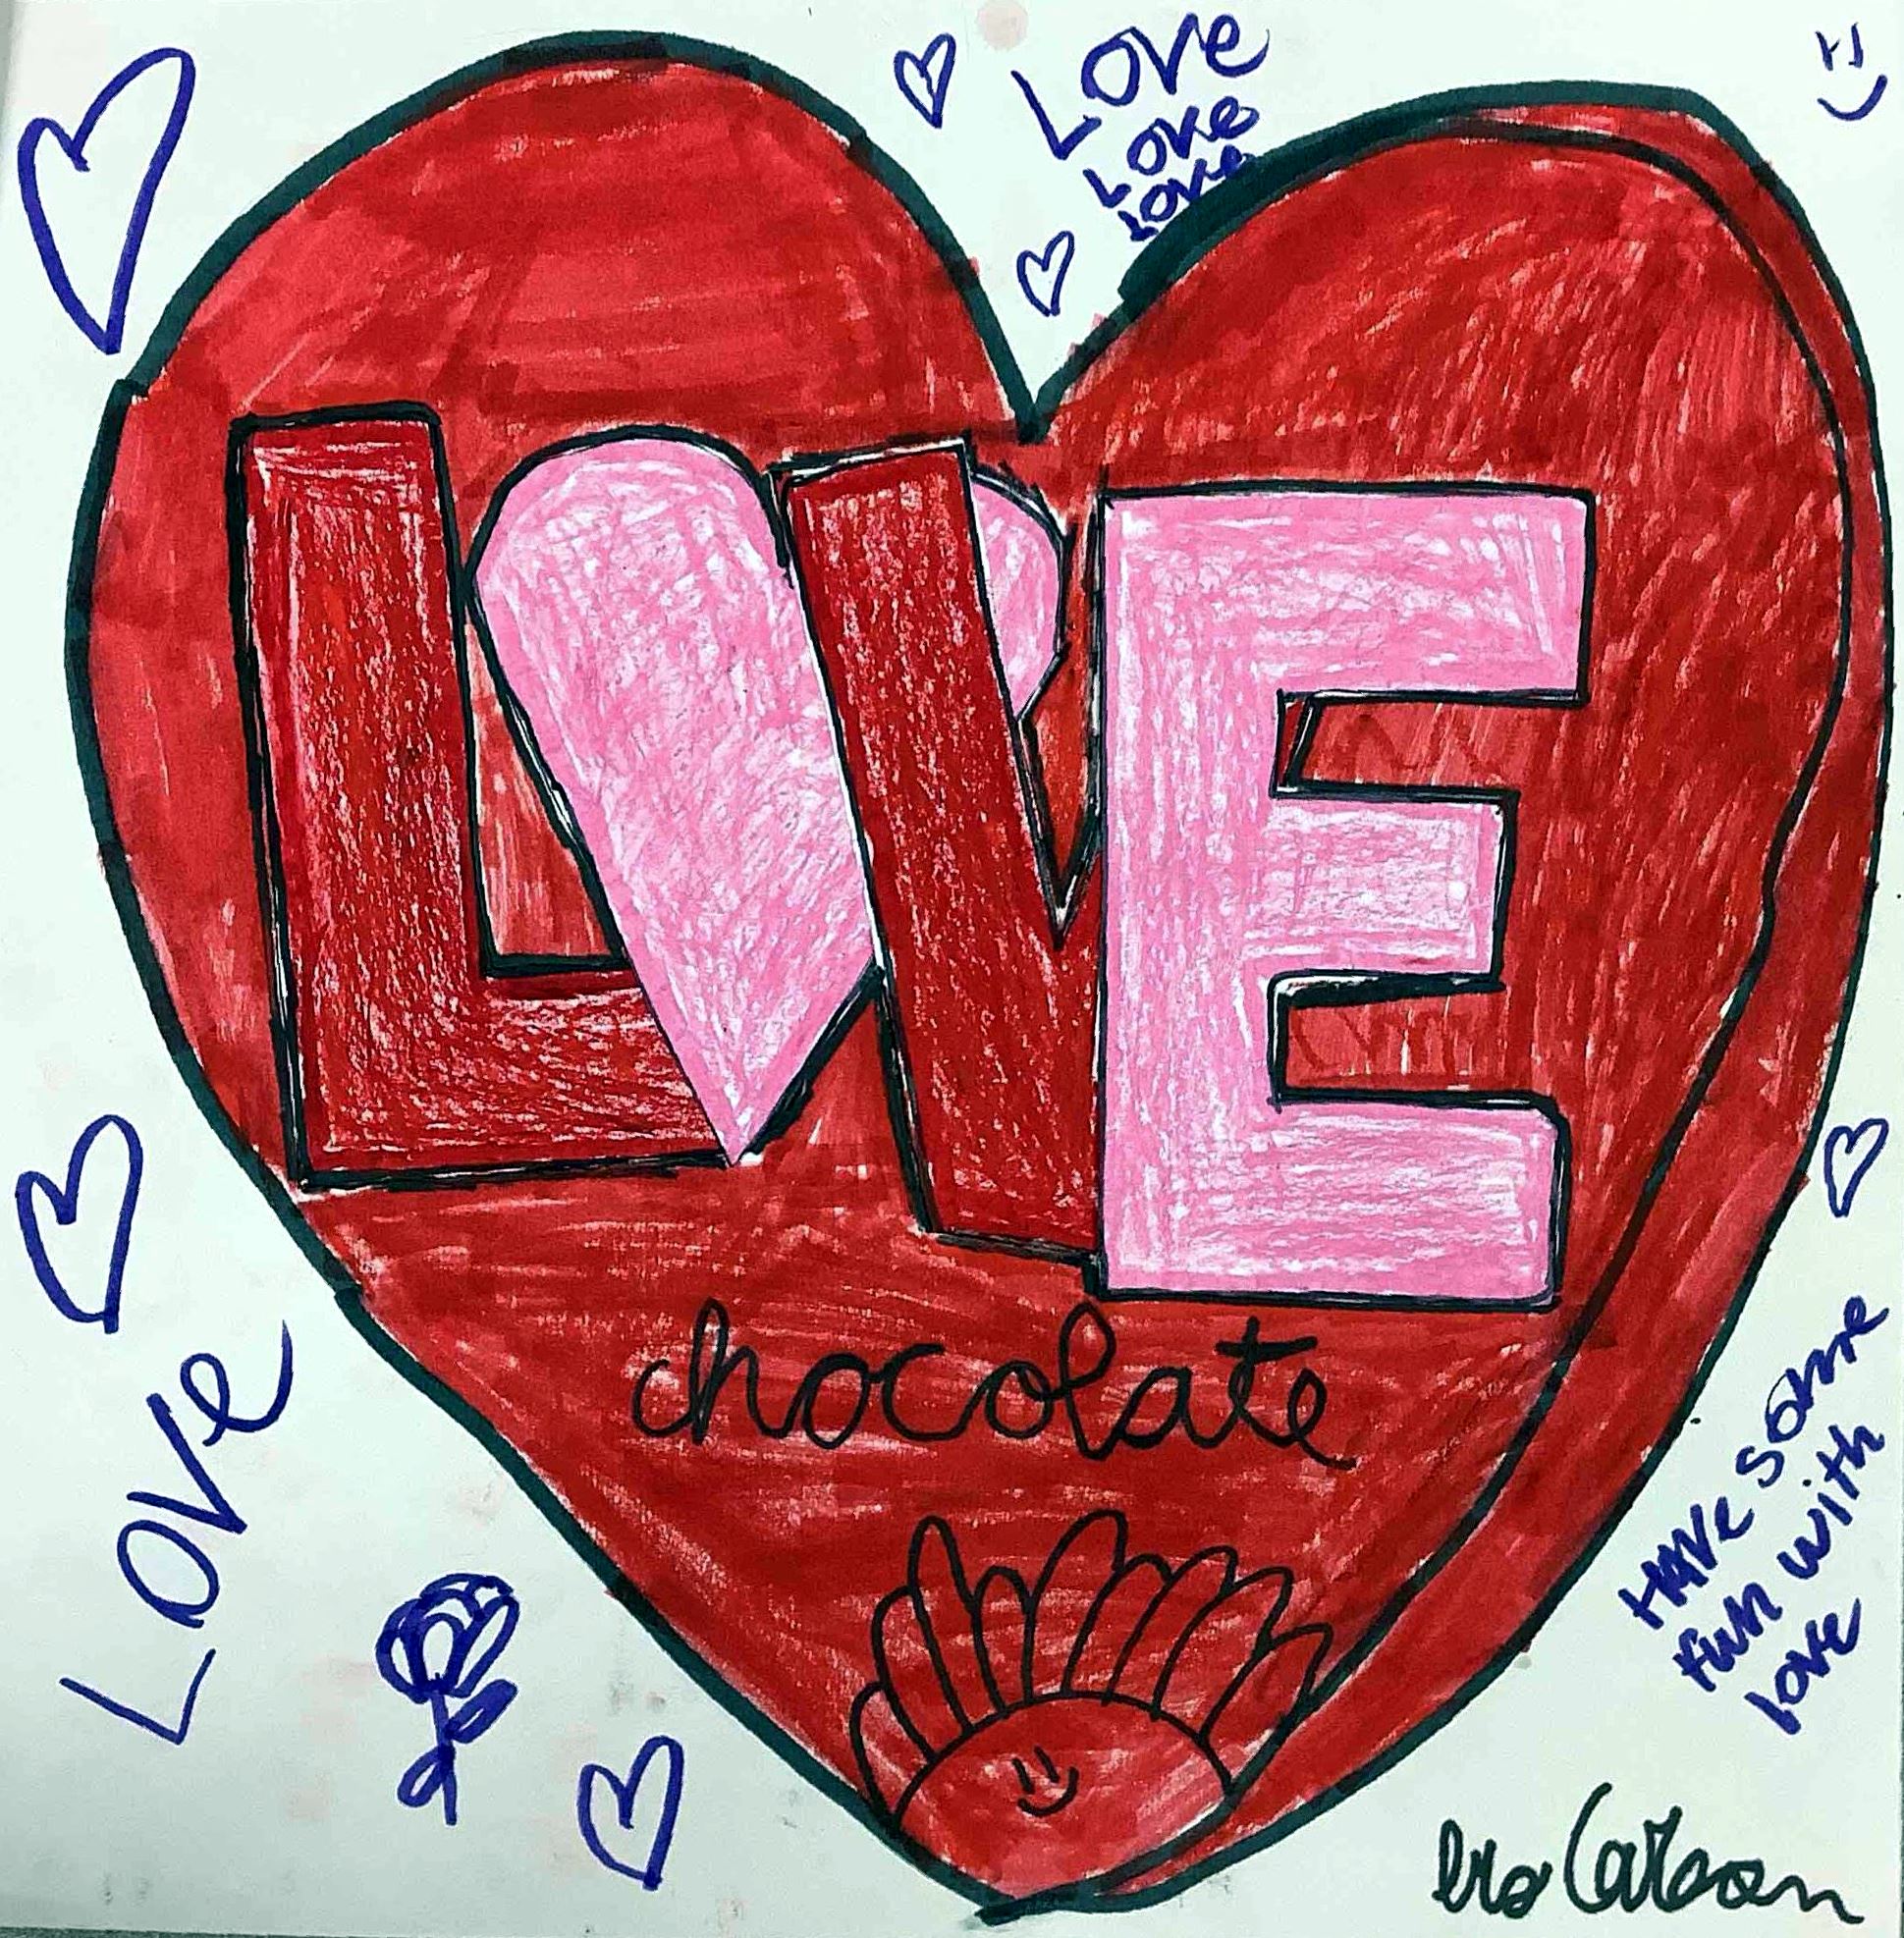 Love
Love
Love
LOVE
chocolate
Love
HAVE some
fun with
love
Carson